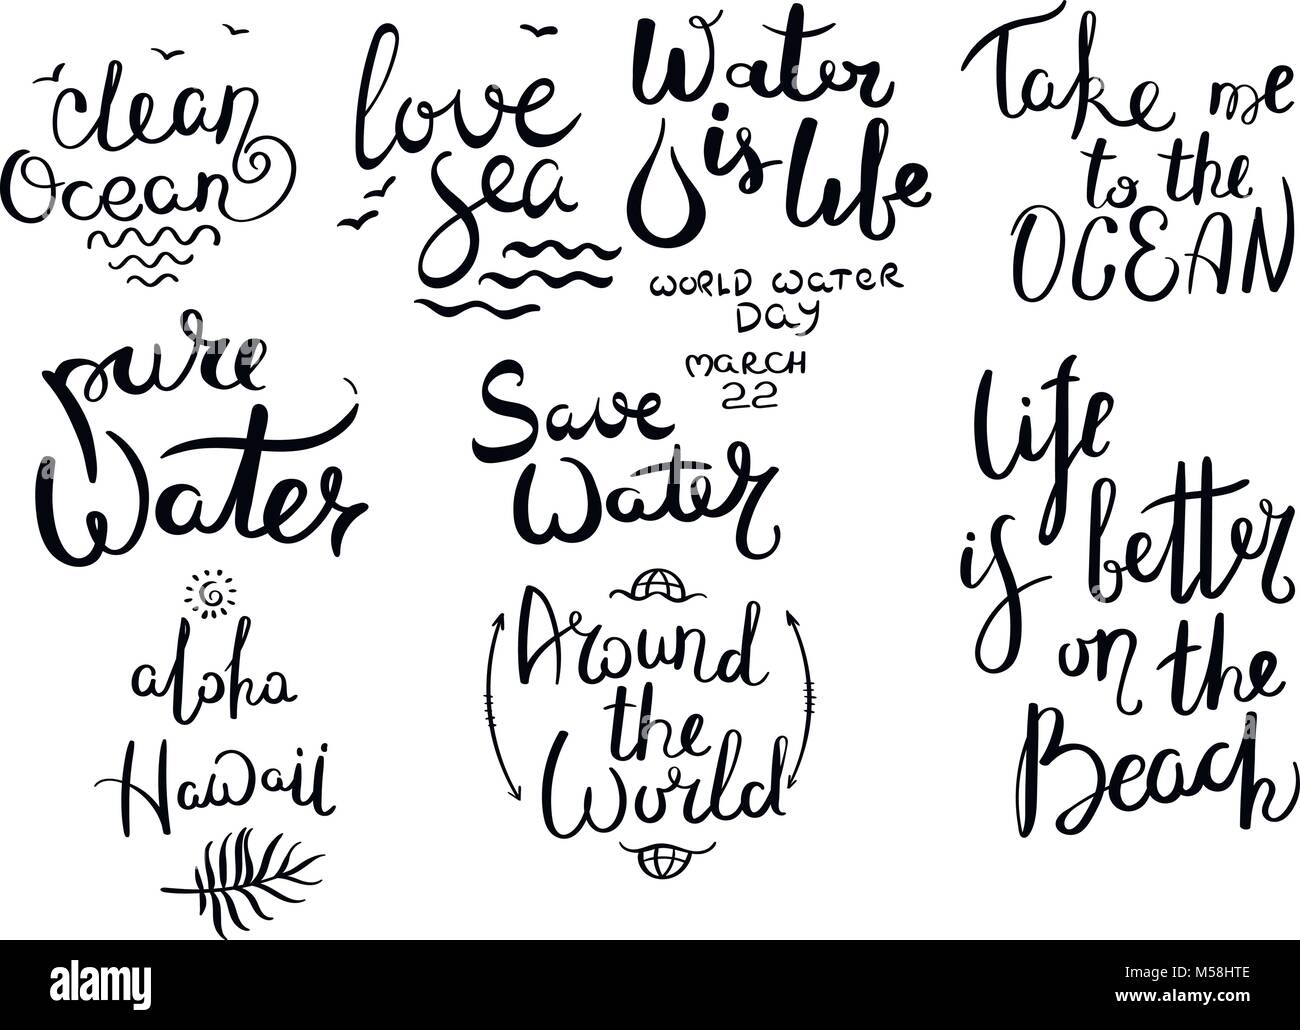 clean
Ocean
love
sea
Water
is life
WORLD WATER
DAY
MARCH
22
Take me
to the
OCEAN
pure
Water
Save
Water
life
is better
on the
Beach
aloha
Hawaii
Around
the
World
alamy
Image ID: M58HTE
www.alamy.com